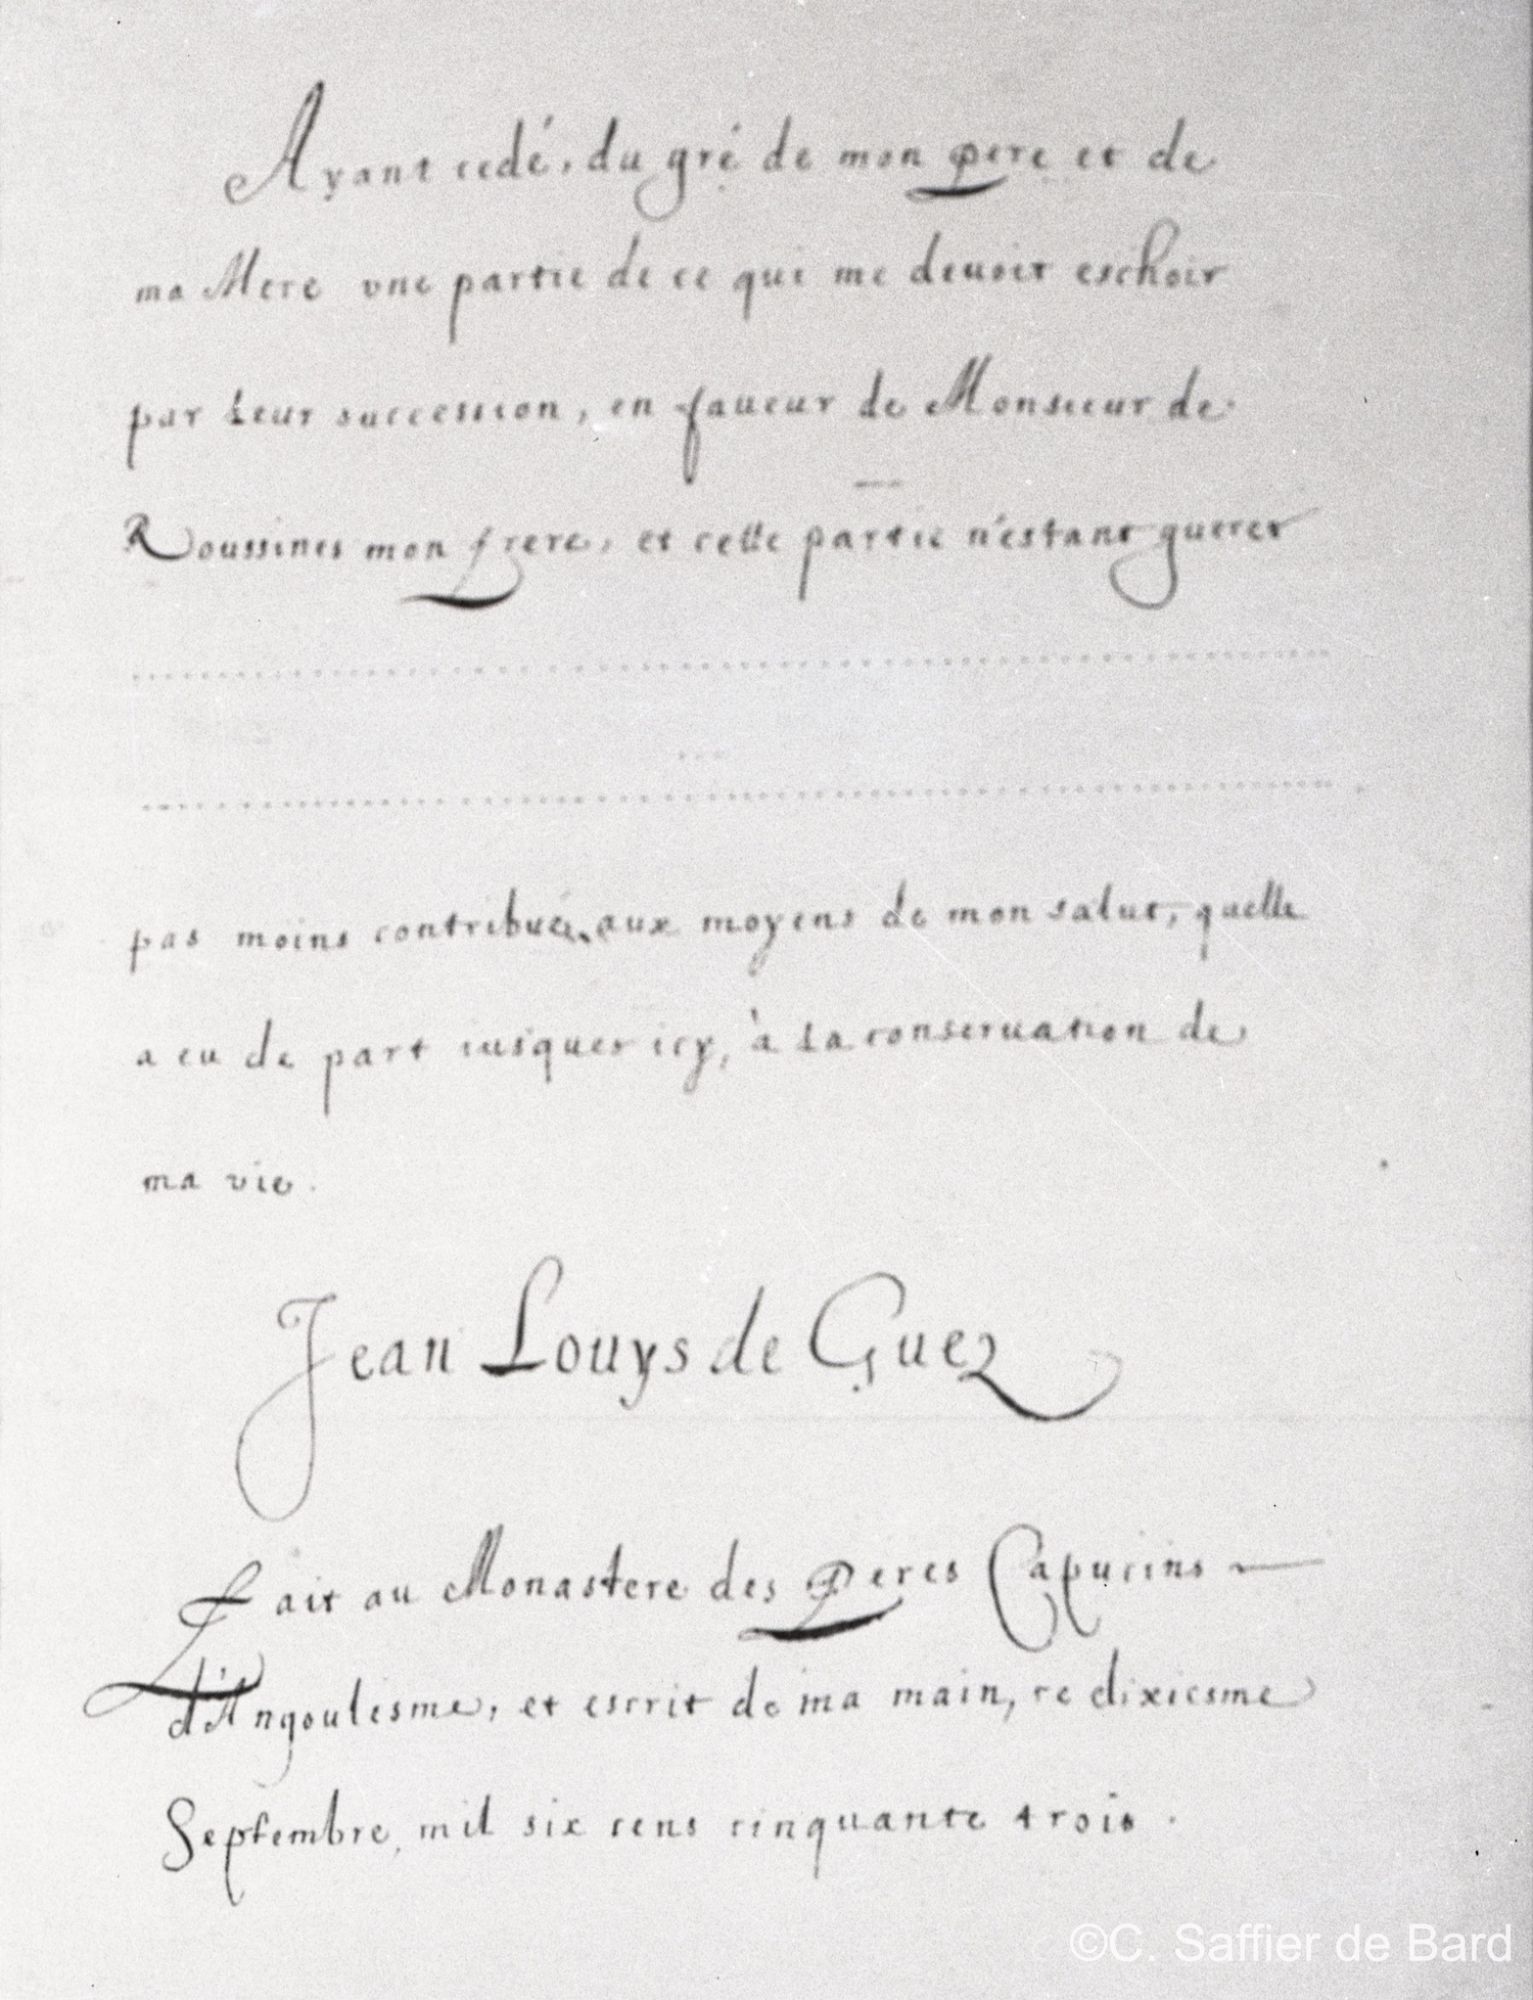 Ayant cedé, du gré de mon pere et de
ma Mere vne partie de ce qui me deuoit eschoir
par leur succession, en faueur de Monsieur de
Roussines mon frere, et celle partie n'estant gueres
pas moins contribué, aux moyens de mon salut, quelle
a eu de part iusques icy, à la conseruation de
ma vie.
Jean Louys de Guez
Fait au Monastere des Peres Capucins —
d'Angoulesme, et escrit de ma main, ce dixiesme
Septembre, mil six cens cinquante trois.
©C. Saffier de Bard